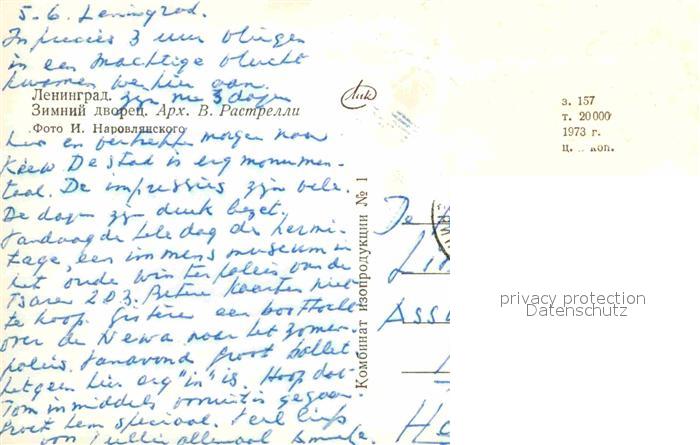 5-6. Leningrad.
In precies 3 uur vliegen
in een machtige vlucht
kwamen we hier aan.
Ленинград. zijn nu 3 dagen
Зимний дворец. Арх. В. Растрелли
Фото И. Наровлянского
hier en vertrekken morgen naar
Kiew. De stad is erg monumen-
taal. De impressies zijn vele.
De dagen zijn druk bezet.
Vandaag de hele dag de hermi-
tage, een immens museum in
het oude winterpaleis van de
Tsaren. Betere kaarten niet
te koop. Gisteren een boottocht
over de Newa naar het zomer-
paleis. Vanavond groot ballet
hetgeen hier erg "in" is. Hoop dat
Tom inmiddels vooruit is gegaan.
Groet hem speciaal. Veel liefs
van allemaal
Лик
з. 157
т. 20 000
1973 г.
ц. коп.
Комбинат изопродукции № 1
privacy protection
Datenschutz